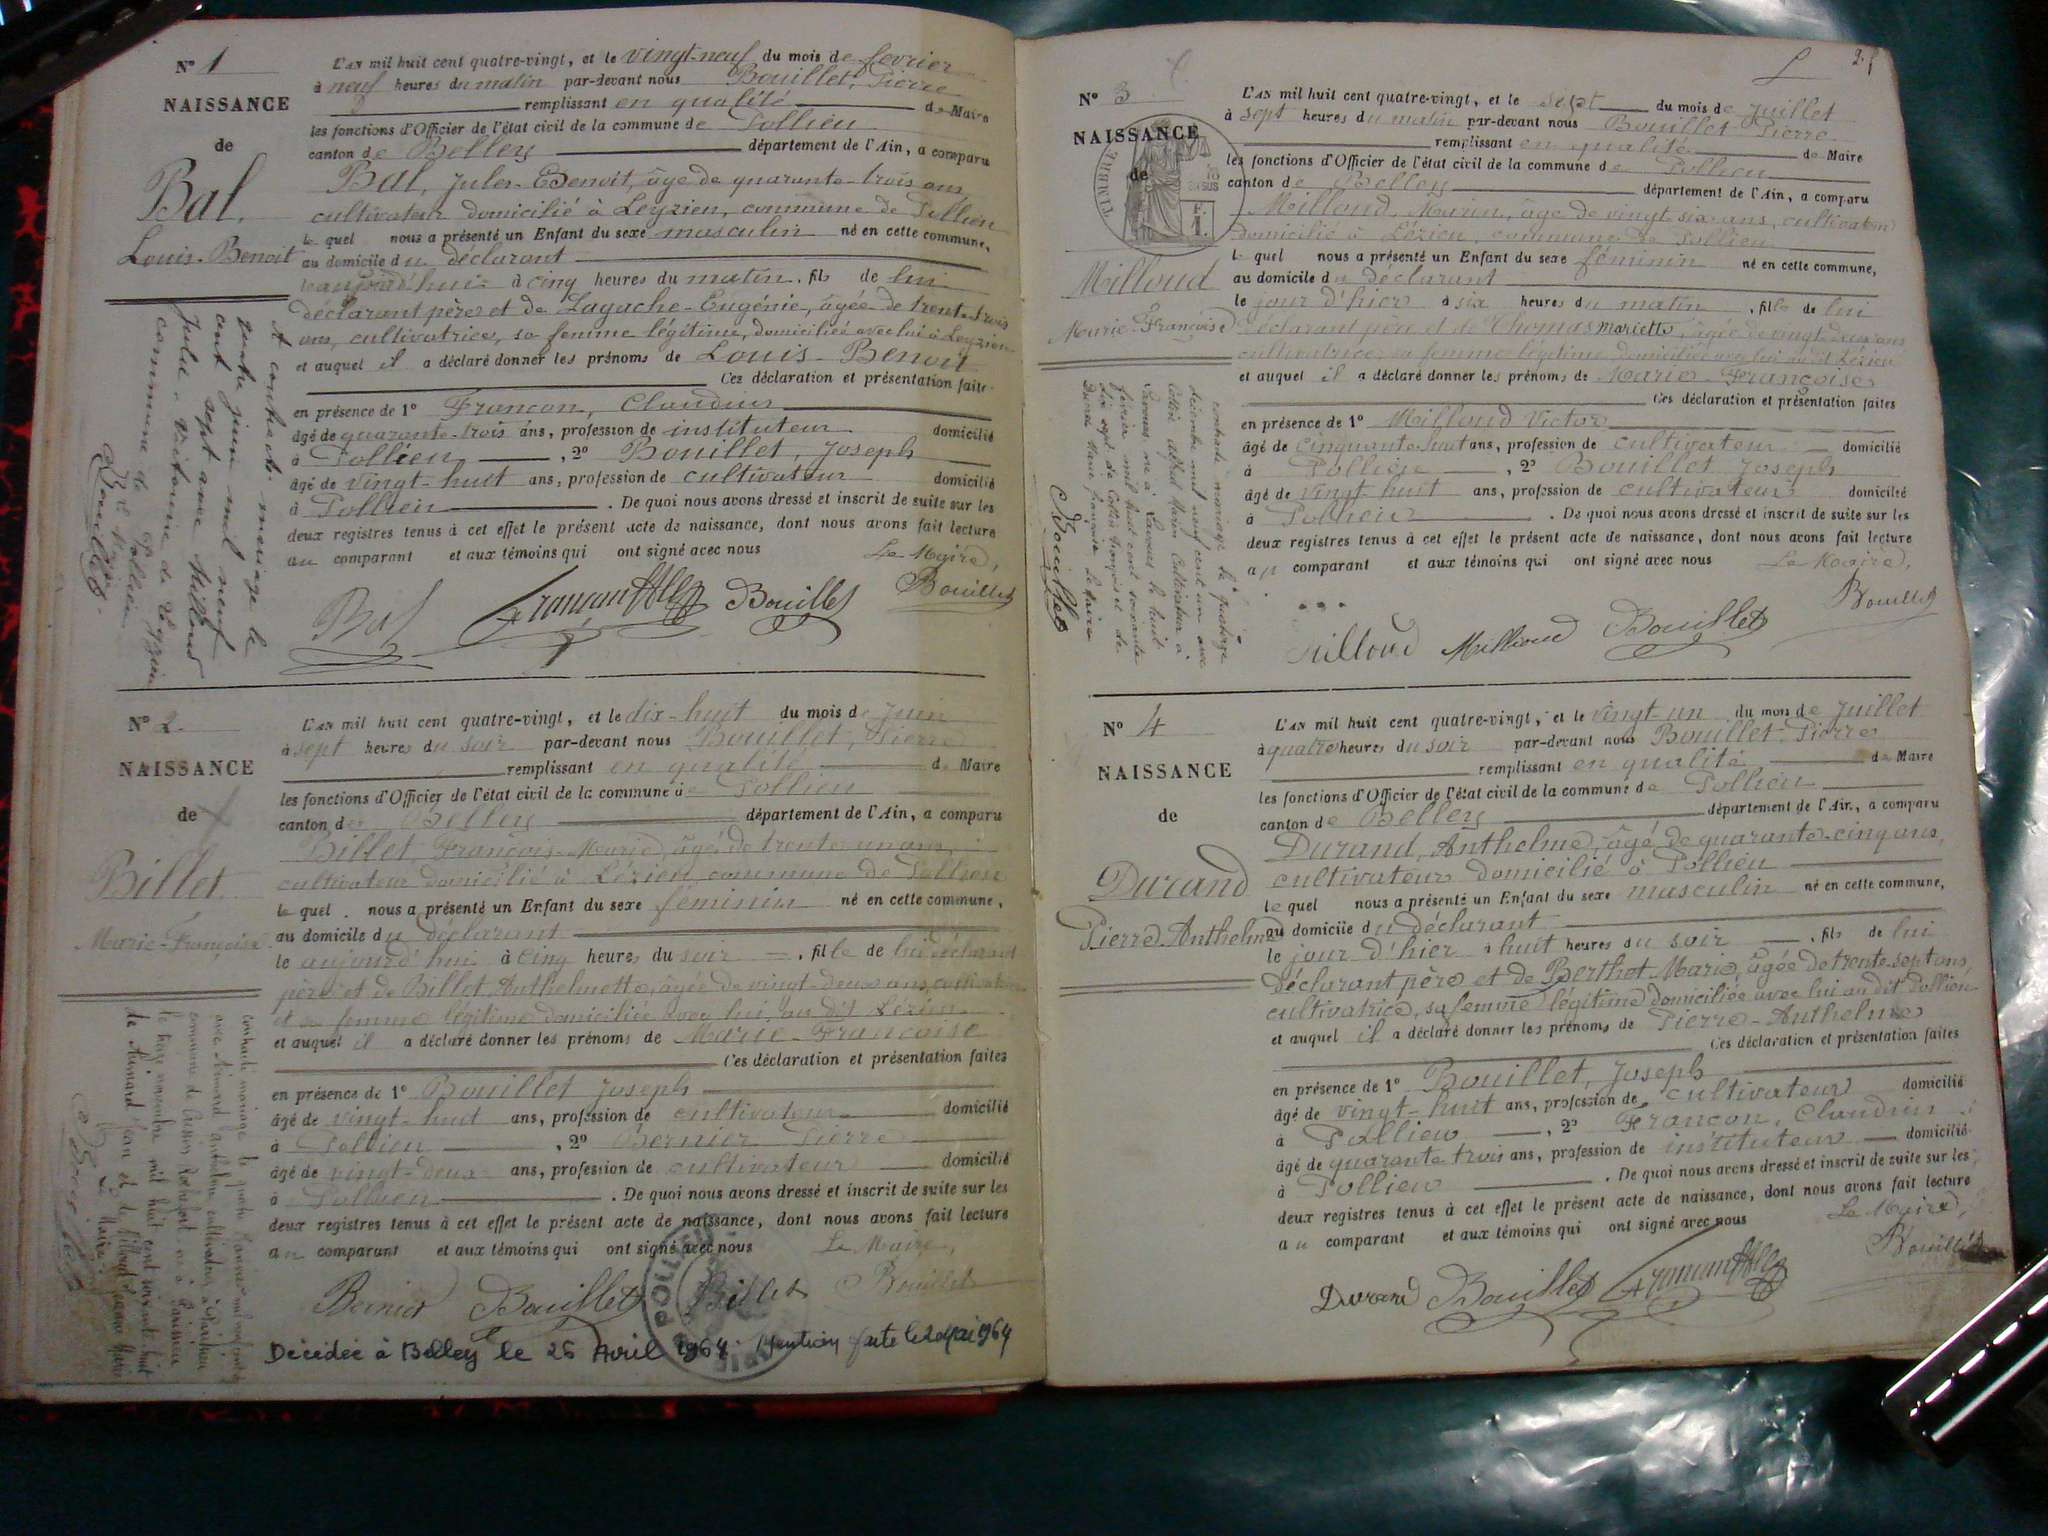 N° 1
NAISSANCE
de
Bal,
Louis-Benoit
L'AN mil huit cent quatre-vingt, et le vingt-neuf du mois de fevrier
à neuf heures du matin par-devant nous Bouillet, Pierre
remplissant en qualité de Maire
les fonctions d'Officier de l'état civil de la commune de Pollieu
canton de Belley département de l'Ain, a comparu
Bal, Jules-Benoit, âgé de quarante-trois ans
cultivateur domicilié à Leyzieu, commune de Pollieu
lequel nous a présenté un Enfant du sexe masculin né en cette commune,
au domicile du déclarant
le aujourd'hui à cinq heures du matin, fils de lui
déclarant père et de Lagache-Eugénie, âgée de trente-trois
ans, cultivatrice, sa femme légitime, domiciliée avec lui à Leyzieu
et auquel il a déclaré donner les prénoms de Louis-Benoit
Ces déclaration et présentation faites
en présence de 1° Francon, Claudius
âgé de quarante-trois ans, profession de instituteur domicilié
à Pollieu, 2° Bouillet, Joseph
âgé de vingt-huit ans, profession de cultivateur domicilié
à Pollieu. De quoi nous avons dressé et inscrit de suite sur les
deux registres tenus à cet effet le présent acte de naissance, dont nous avons fait lecture
au comparant et aux témoins qui ont signé avec nous Le Maire,
Bal Francon Bouillet Bouillet
A contracté mariage le
trente juin mil neuf
cent sept avec Milloud
Julie Victorine de Leyzieu
commune de Pollieu
Le Maire
Bouillet
N° 2
NAISSANCE
de
Billet
Marie-Françoise
L'AN mil huit cent quatre-vingt, et le dix-huit du mois de Juin
à sept heures du soir par-devant nous Bouillet, Pierre
remplissant en qualité de Maire
les fonctions d'Officier de l'état civil de la commune de Pollieu
canton de Belley département de l'Ain, a comparu
Billet, François-Marie, âgé de trente-un ans,
cultivateur domicilié à Lézieu, commune de Pollieu
lequel nous a présenté un Enfant du sexe féminin né en cette commune,
au domicile du déclarant
le aujourd'hui à cinq heures du soir, fille de lui déclarant
père et de Billet Anthelmette, âgée de vingt-deux ans, cultivatrice
et sa femme légitime domiciliée avec lui au dit Lézieu
et auquel il a déclaré donner les prénoms de Marie-Françoise
Ces déclaration et présentation faites
en présence de 1° Bouillet Joseph
âgé de vingt-huit ans, profession de cultivateur domicilié
à Pollieu, 2° Bernier Pierre
âgé de vingt-deux ans, profession de cultivateur domicilié
à Pollieu. De quoi nous avons dressé et inscrit de suite sur les
deux registres tenus à cet effet le présent acte de naissance, dont nous avons fait lecture
au comparant et aux témoins qui ont signé avec nous Le Maire,
Bernier Bouillet Billet Bouillet
POLLIEU
Décédée à Belley le 26 Avril 1964. Mention faite le 2 Mai 1964
contracté mariage le quatre
avec Aimard Anthelme cultivateur à
commune de Cressin Rochefort né à
le treize novembre mil huit cent soixante-huit
de Aimard Jean et de
Le Maire
N° 3
NAISSANCE
de
TIMBRE
Milloud
Marie-Françoise
L'AN mil huit cent quatre-vingt, et le sept du mois de Juillet
à sept heures du matin par-devant nous Bouillet Pierre
remplissant en qualité de Maire
les fonctions d'Officier de l'état civil de la commune de Pollieu
canton de Belley département de l'Ain, a comparu
Milloud, Marin, âgé de vingt-six ans, cultivateur
domicilié à Lézieu, commune de Pollieu
lequel nous a présenté un Enfant du sexe féminin né en cette commune,
au domicile du déclarant
le jour d'hier à six heures du matin, fille de lui
déclarant père et de Thomas Mariette, âgée de vingt-deux ans
cultivatrice, sa femme légitime domiciliée avec lui au dit Lézieu
et auquel il a déclaré donner les prénoms de Marie-Françoise
Ces déclaration et présentation faites
en présence de 1° Milloud Victor
âgé de cinquante-huit ans, profession de cultivateur domicilié
à Pollieu, 2° Bouillet Joseph
âgé de vingt-huit ans, profession de cultivateur domicilié
à Pollieu. De quoi nous avons dressé et inscrit de suite sur les
deux registres tenus à cet effet le présent acte de naissance, dont nous avons fait lecture
au comparant et aux témoins qui ont signé avec nous Le Maire,
Milloud Milloud Bouillet Bouillet
contracté mariage le quatorze
décembre mil neuf cent un avec
Marin Cultivateur à
Lavours né à Lavours le huit
février mil huit cent soixante
dix sept de Collin François et de
Durau Marie Françoise Le Maire
Bouillet
N° 4
NAISSANCE
de
Durand
Pierre-Anthelme
L'AN mil huit cent quatre-vingt, et le vingt-un du mois de Juillet
à quatre heures du soir par-devant nous Bouillet, Pierre
remplissant en qualité de Maire
les fonctions d'Officier de l'état civil de la commune de Pollieu
canton de Belley département de l'Ain, a comparu
Durand, Anthelme, âgé de quarante-cinq ans,
cultivateur domicilié à Pollieu
lequel nous a présenté un Enfant du sexe masculin né en cette commune,
au domicile du déclarant
le jour d'hier à huit heures du soir, fils de lui
déclarant père et de Berthet Marie, âgée de trente-sept ans,
cultivatrice, sa femme légitime domiciliée avec lui au dit Pollieu
et auquel il a déclaré donner les prénoms de Pierre-Anthelme
Ces déclaration et présentation faites
en présence de 1° Bouillet, Joseph
âgé de vingt-huit ans, profession de cultivateur domicilié
à Pollieu, 2° Francon, Claudius
âgé de quarante trois ans, profession de instituteur domicilié
à Pollieu. De quoi nous avons dressé et inscrit de suite sur les
deux registres tenus à cet effet le présent acte de naissance, dont nous avons fait lecture
au comparant et aux témoins qui ont signé avec nous Le Maire,
Durand Bouillet Francon Bouillet